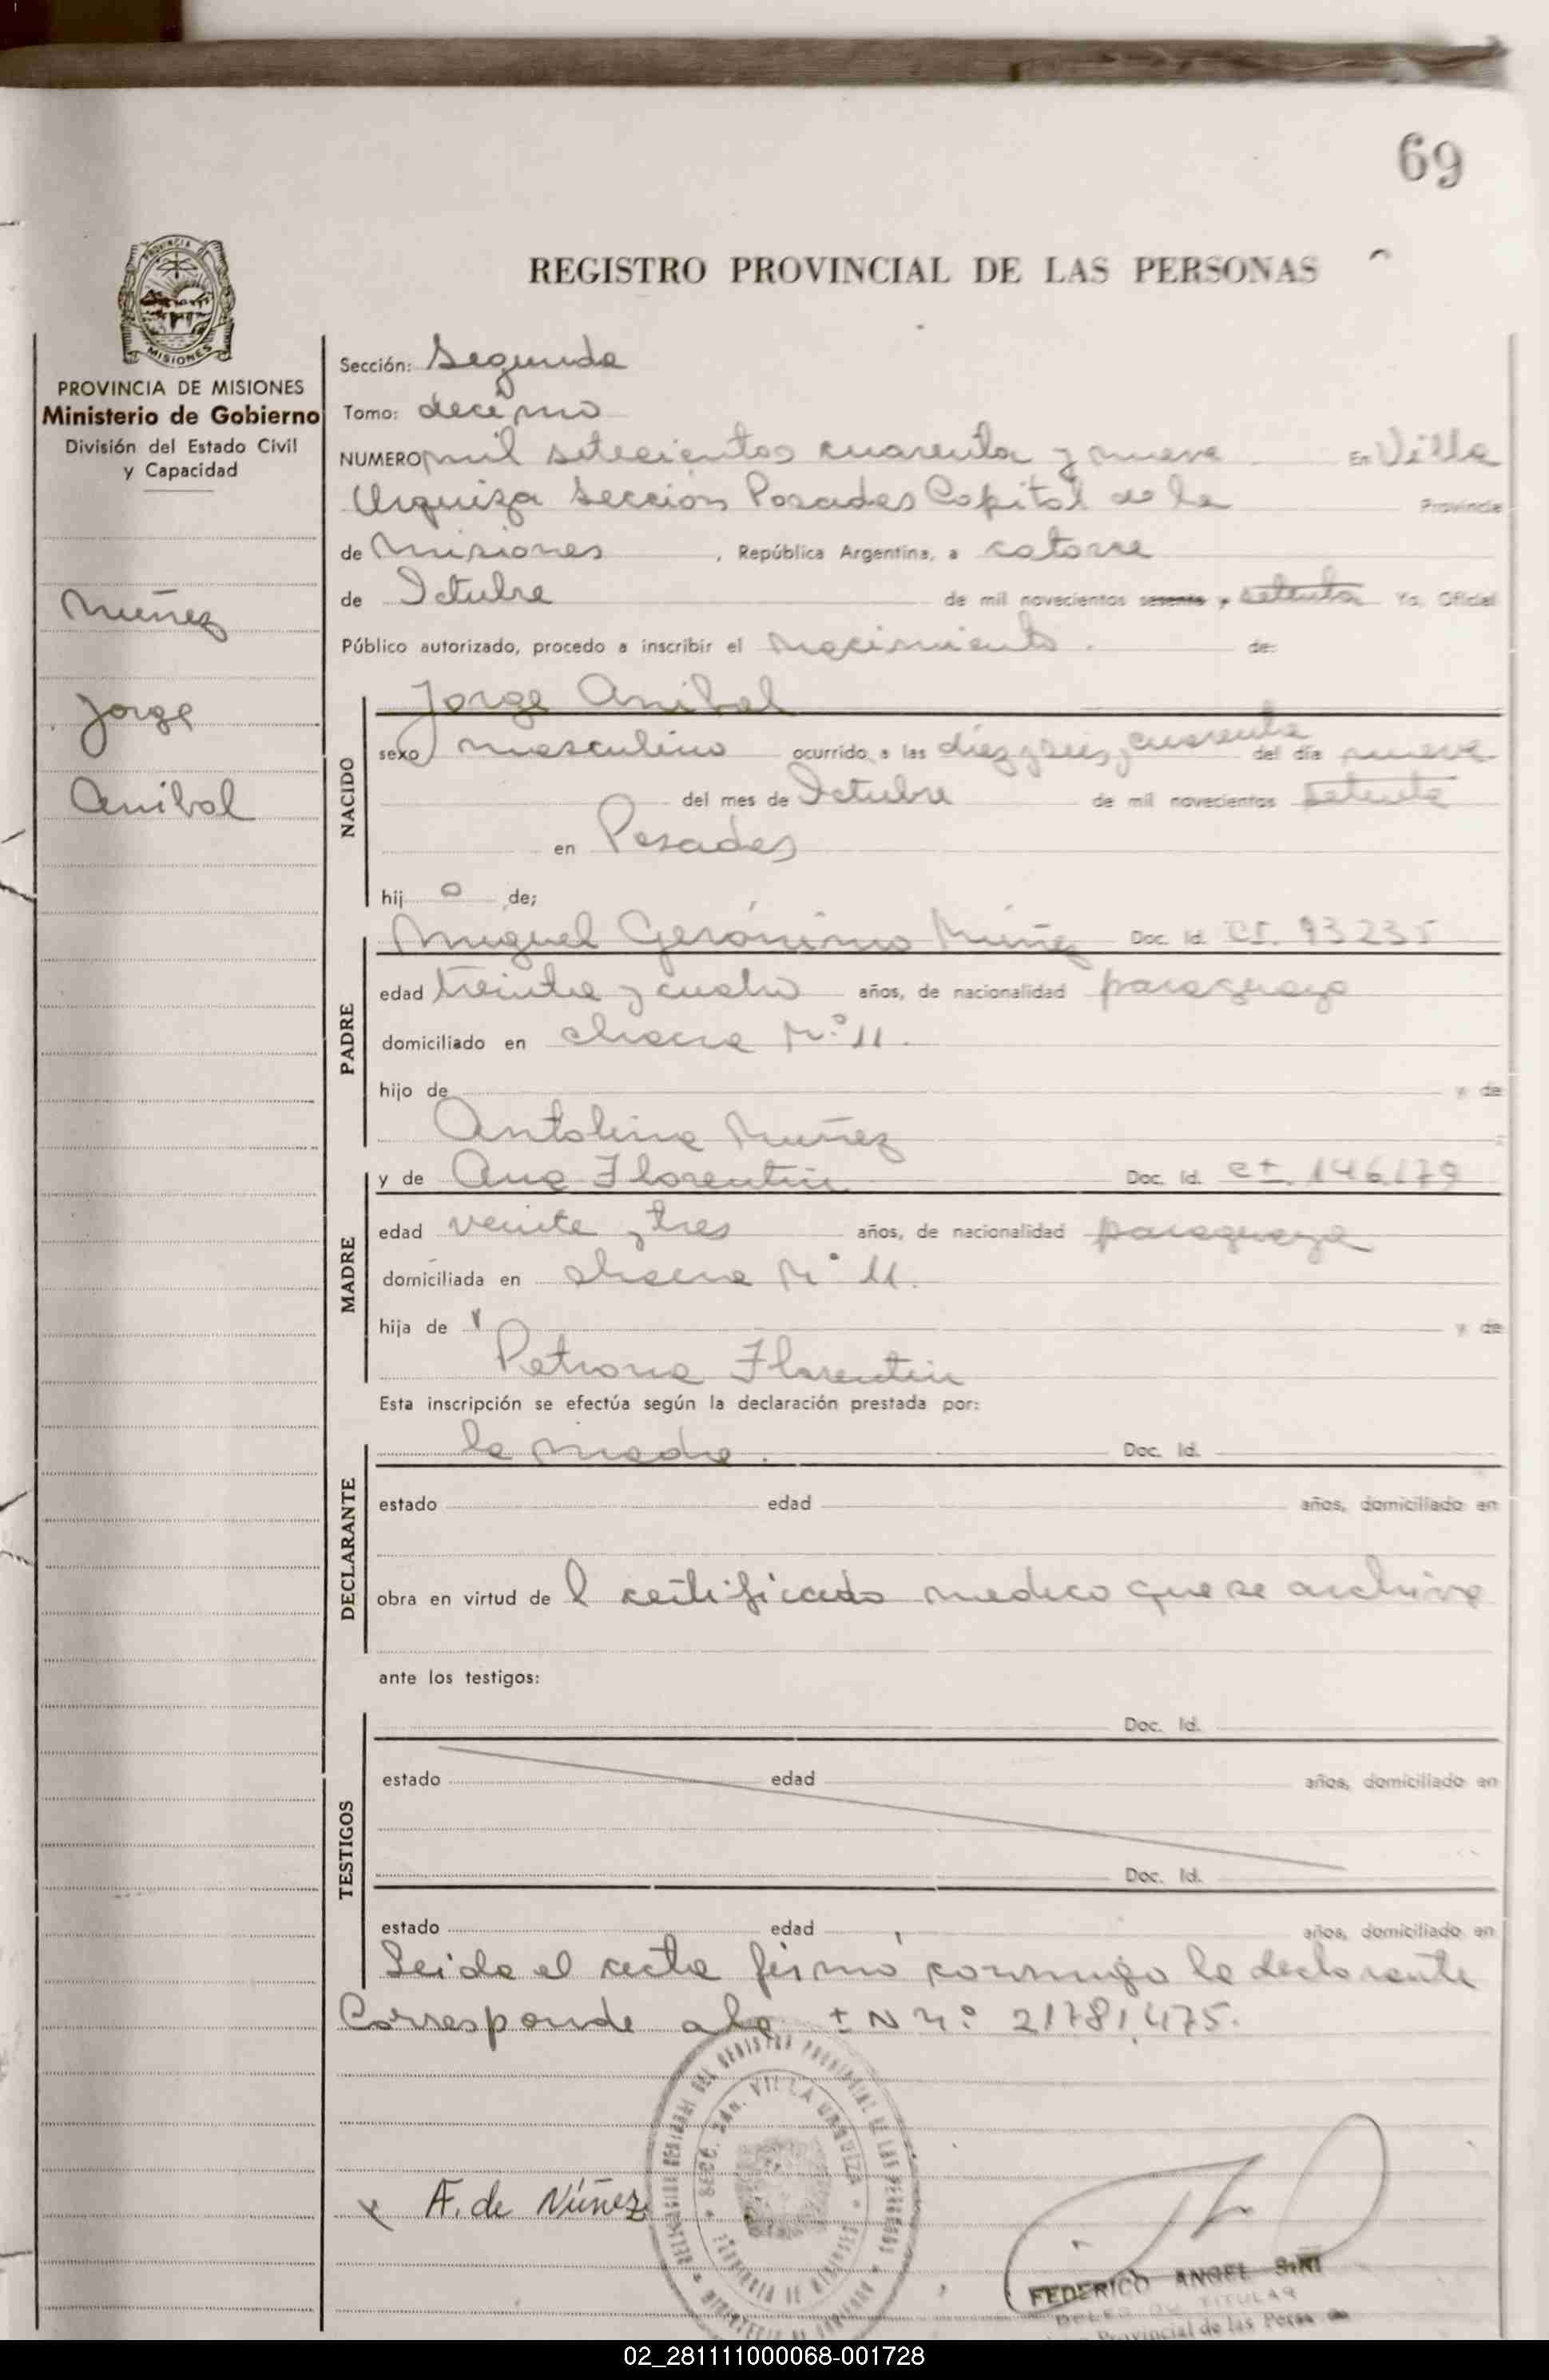 69
REGISTRO PROVINCIAL DE LAS PERSONAS
PROVINCIA
MISIONES
PROVINCIA DE MISIONES
Ministerio de Gobierno
División del Estado Civil
y Capacidad
Núñez
Jorge
Anibal
Sección: Segunda
Tomo: decimo
NUMERO mil setecientos cuarenta y nueve En Villa
Urquiza Sección Posadas Capital de la Provincia
de Misiones , República Argentina, a catorce
de Octubre de mil novecientos sesenta y setenta Yo, Oficial
Público autorizado, procedo a inscribir el nacimiento . de:
Jorge Anibal
NACIDO
sexo masculino ocurrido a las diez y seis y cuarenta del día nueve
del mes de Octubre de mil novecientos setenta
en Posadas
hij o de;
PADRE
Miguel Gerónimo Núñez Doc. Id. CI. 93235
edad treinta y cuatro años, de nacionalidad paraguayo
domiciliado en chacra N.º 11.
hijo de y de
Antolina Nuñez
MADRE
y de Ana Florentin Doc. Id. CI. 146.179
edad veinte y tres años, de nacionalidad paraguaya
domiciliada en chacra Nº 11.
hija de y de
Petrona Florentin
Esta inscripción se efectúa según la declaración prestada por:
DECLARANTE
la madre. Doc. Id.
estado edad años, domiciliado en
obra en virtud de l certificado medico que se archiva
ante los testigos:
TESTIGOS
Doc. Id.
estado edad años, domiciliado en
Doc. Id.
estado edad años, domiciliado en
Leida el acta firmó conmigo la declarante
Corresponde a la I N n.º 21781,475.
DEL REGISTRO PROVINCIAL DE LAS PERSONAS
SECC. 2da. VILLA URQUIZA
PROVINCIA DE MISIONES
MINISTERIO DE GOBIERNO
A. de Núñez
FEDERICO ANGEL
TITULAR
Provincial de las
02_281111000068-001728